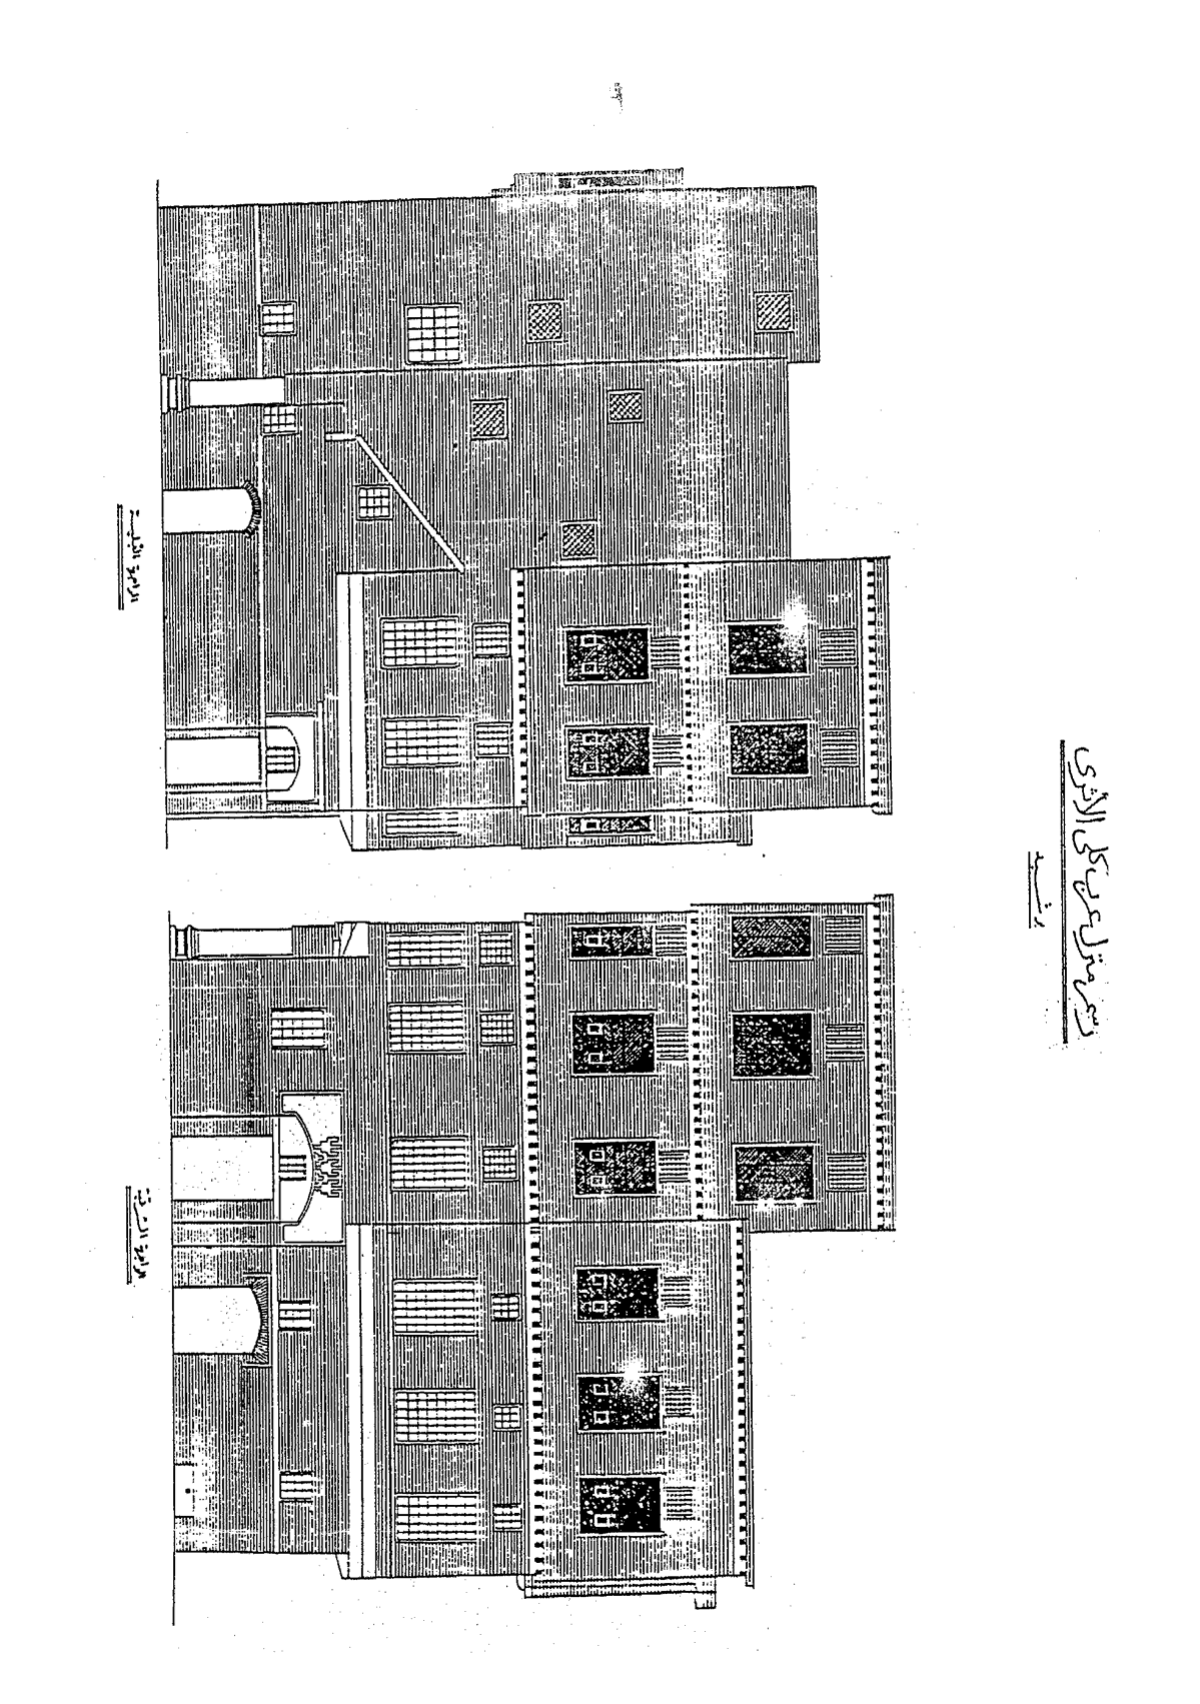 رسمى منزل عرب كلى الأثرى
برشيد
الواجهة القبلية
الواجهة الشرقية